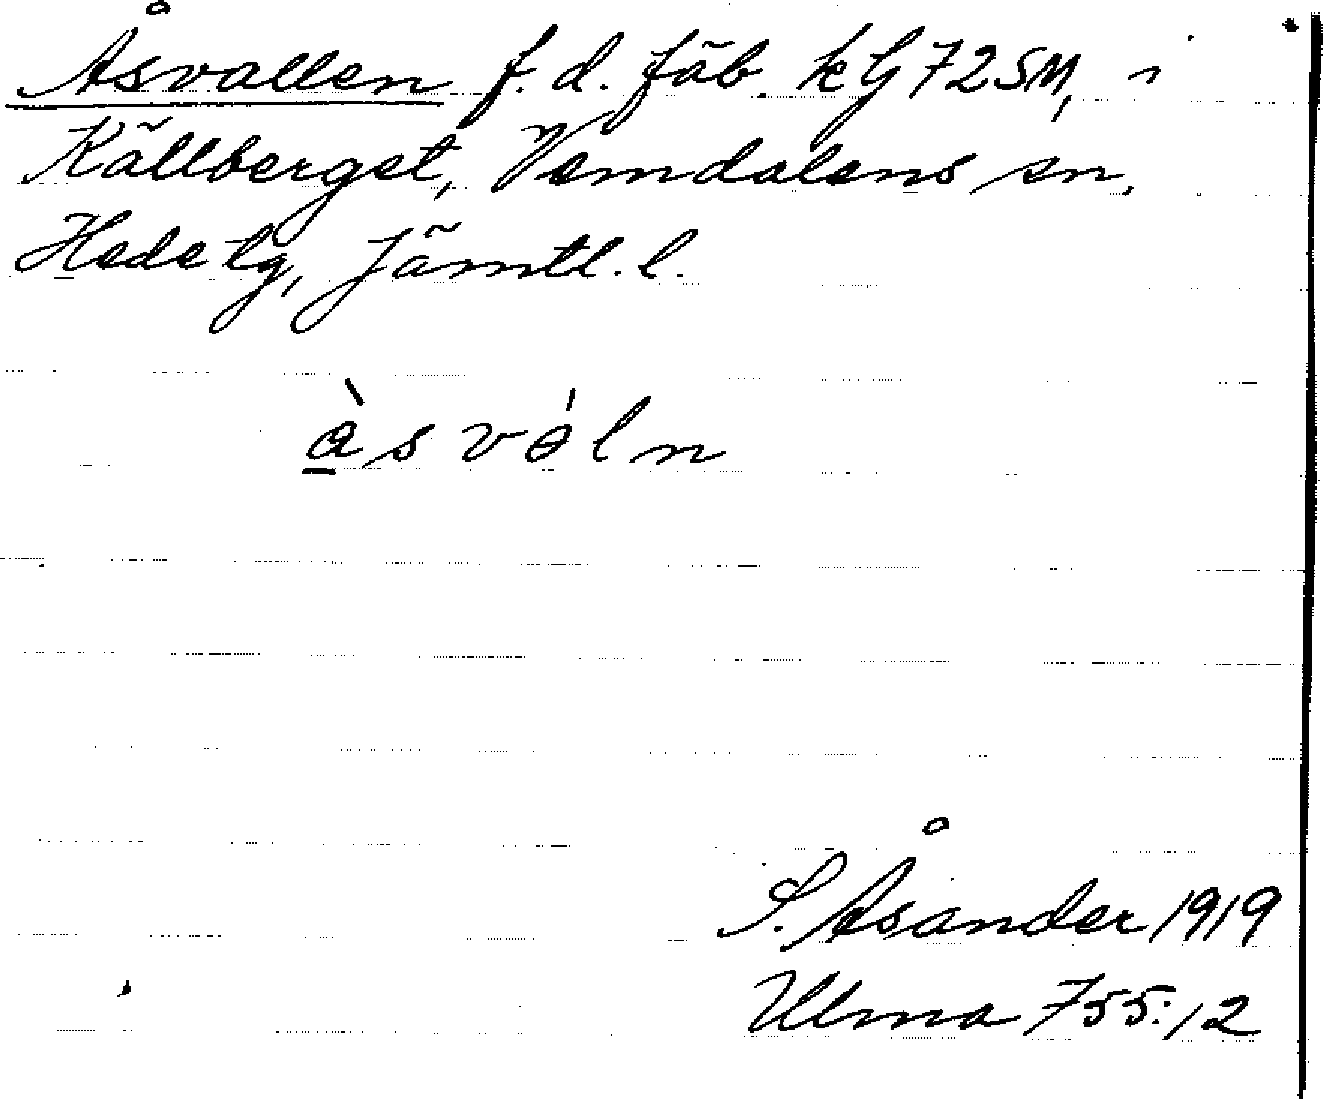 Åsvallen f.d. fäb. kG725M, i
Källberget, Vemdalens sn,
Hede tg, Jämtl. l.
S. Åsander 1919
Ulma 755:12